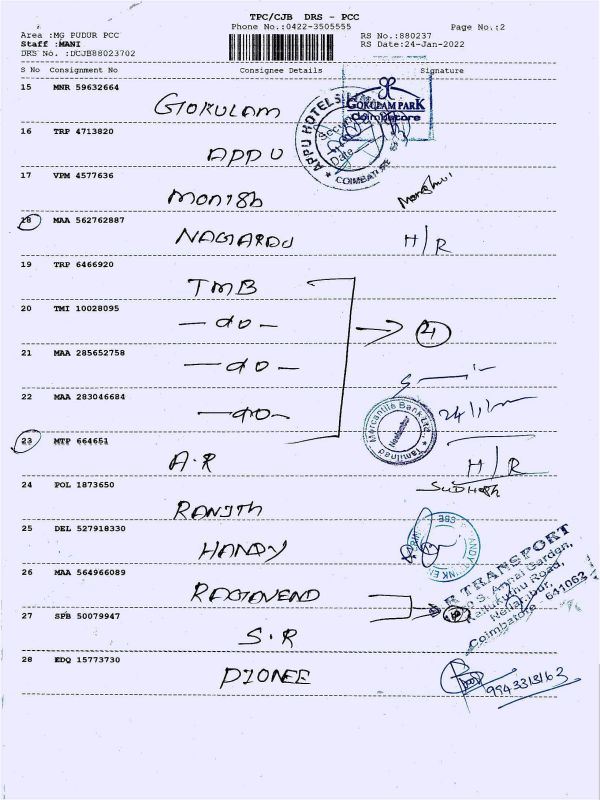 TPC/CJB DRS - PCC
Phone No.:0422-3505555
Page No.:2
Area :MG PUDUR PCC
Staff :MANI
DRS No. :DCJB88023702
RS No.:880237
RS Date:24-Jan-2022
S No Consignment No Consignee Details Signature
15 MNR 59632664
GOKULAM
GOKULAM PARK
Coimbatore
APPU HOTELS
COIMBATORE
Date
16 TRP 4713820
APPU
17 VPM 4577636
MONISH
18 MAA 562762887
NAGARAJ H/R
19 TRP 6466920
TMB
20 TMI 10028095
— do —
4
21 MAA 285652758
— do —
22 MAA 283046684
— do —
Tamilnad Mercantile Bank Ltd.
23 MTP 664651
A.R H/R
24 POL 1873650
RANJTH
SUDHESH
25 DEL 527918330
HANDY
CBE
26 MAA 564966089
RAGAVEND
27 SPB 50079947
S.R
S R TRANSPORT
Coimbatore 641062
28 EDQ 15773730
PIONEE
9943313163